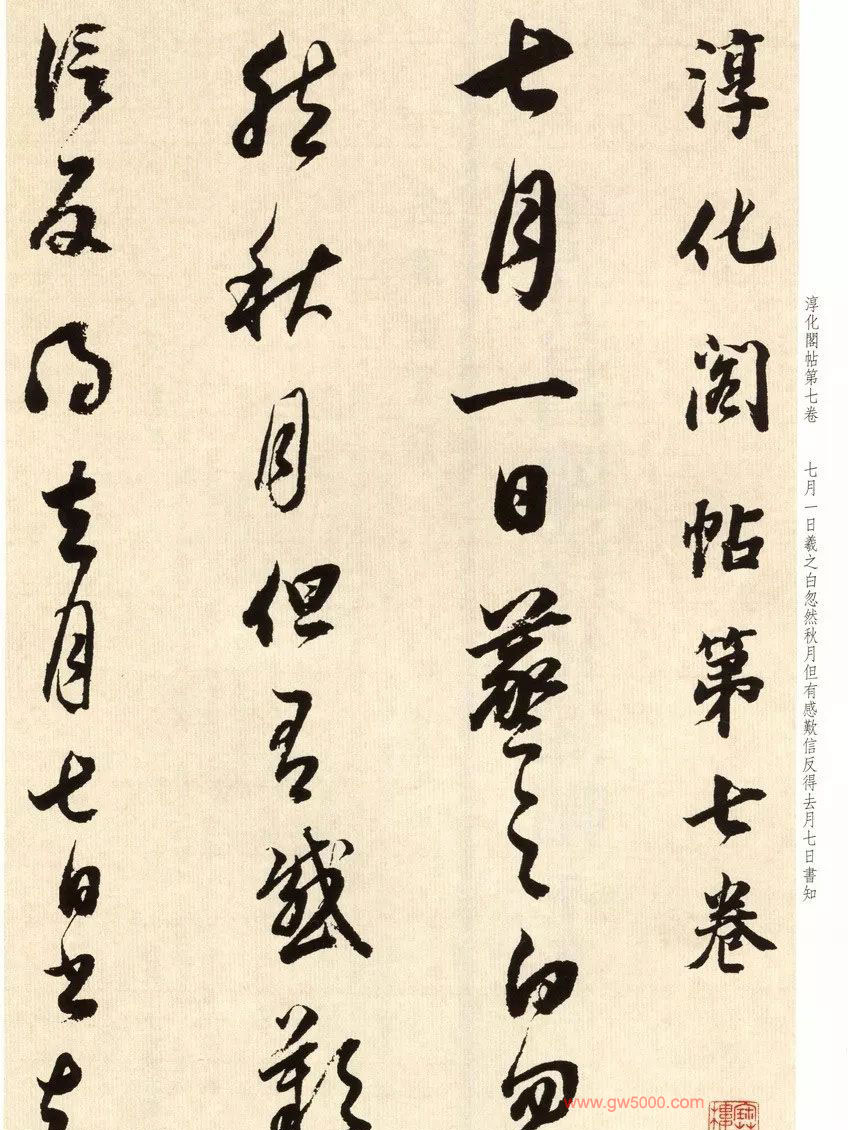 淳化閣帖第七卷　七月一日羲之白忽然秋月但有感歎信反得去月七日書知
淳化閣帖第七卷
七月一日羲之白忽
然秋月但有感歎
信反得去月七日書知
www.gw5000.com